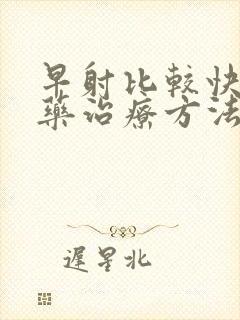 早射比較快
藥治療方法
遲星北